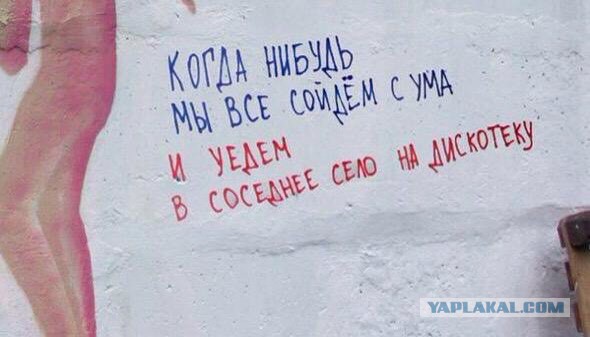 КОГДА НИБУДЬ
МЫ ВСЕ СОЙДЁМ С УМА
И УЕДЕМ
В СОСЕДНЕЕ СЕЛО НА ДИСКОТЕКУ
YAPLAKAL.COM